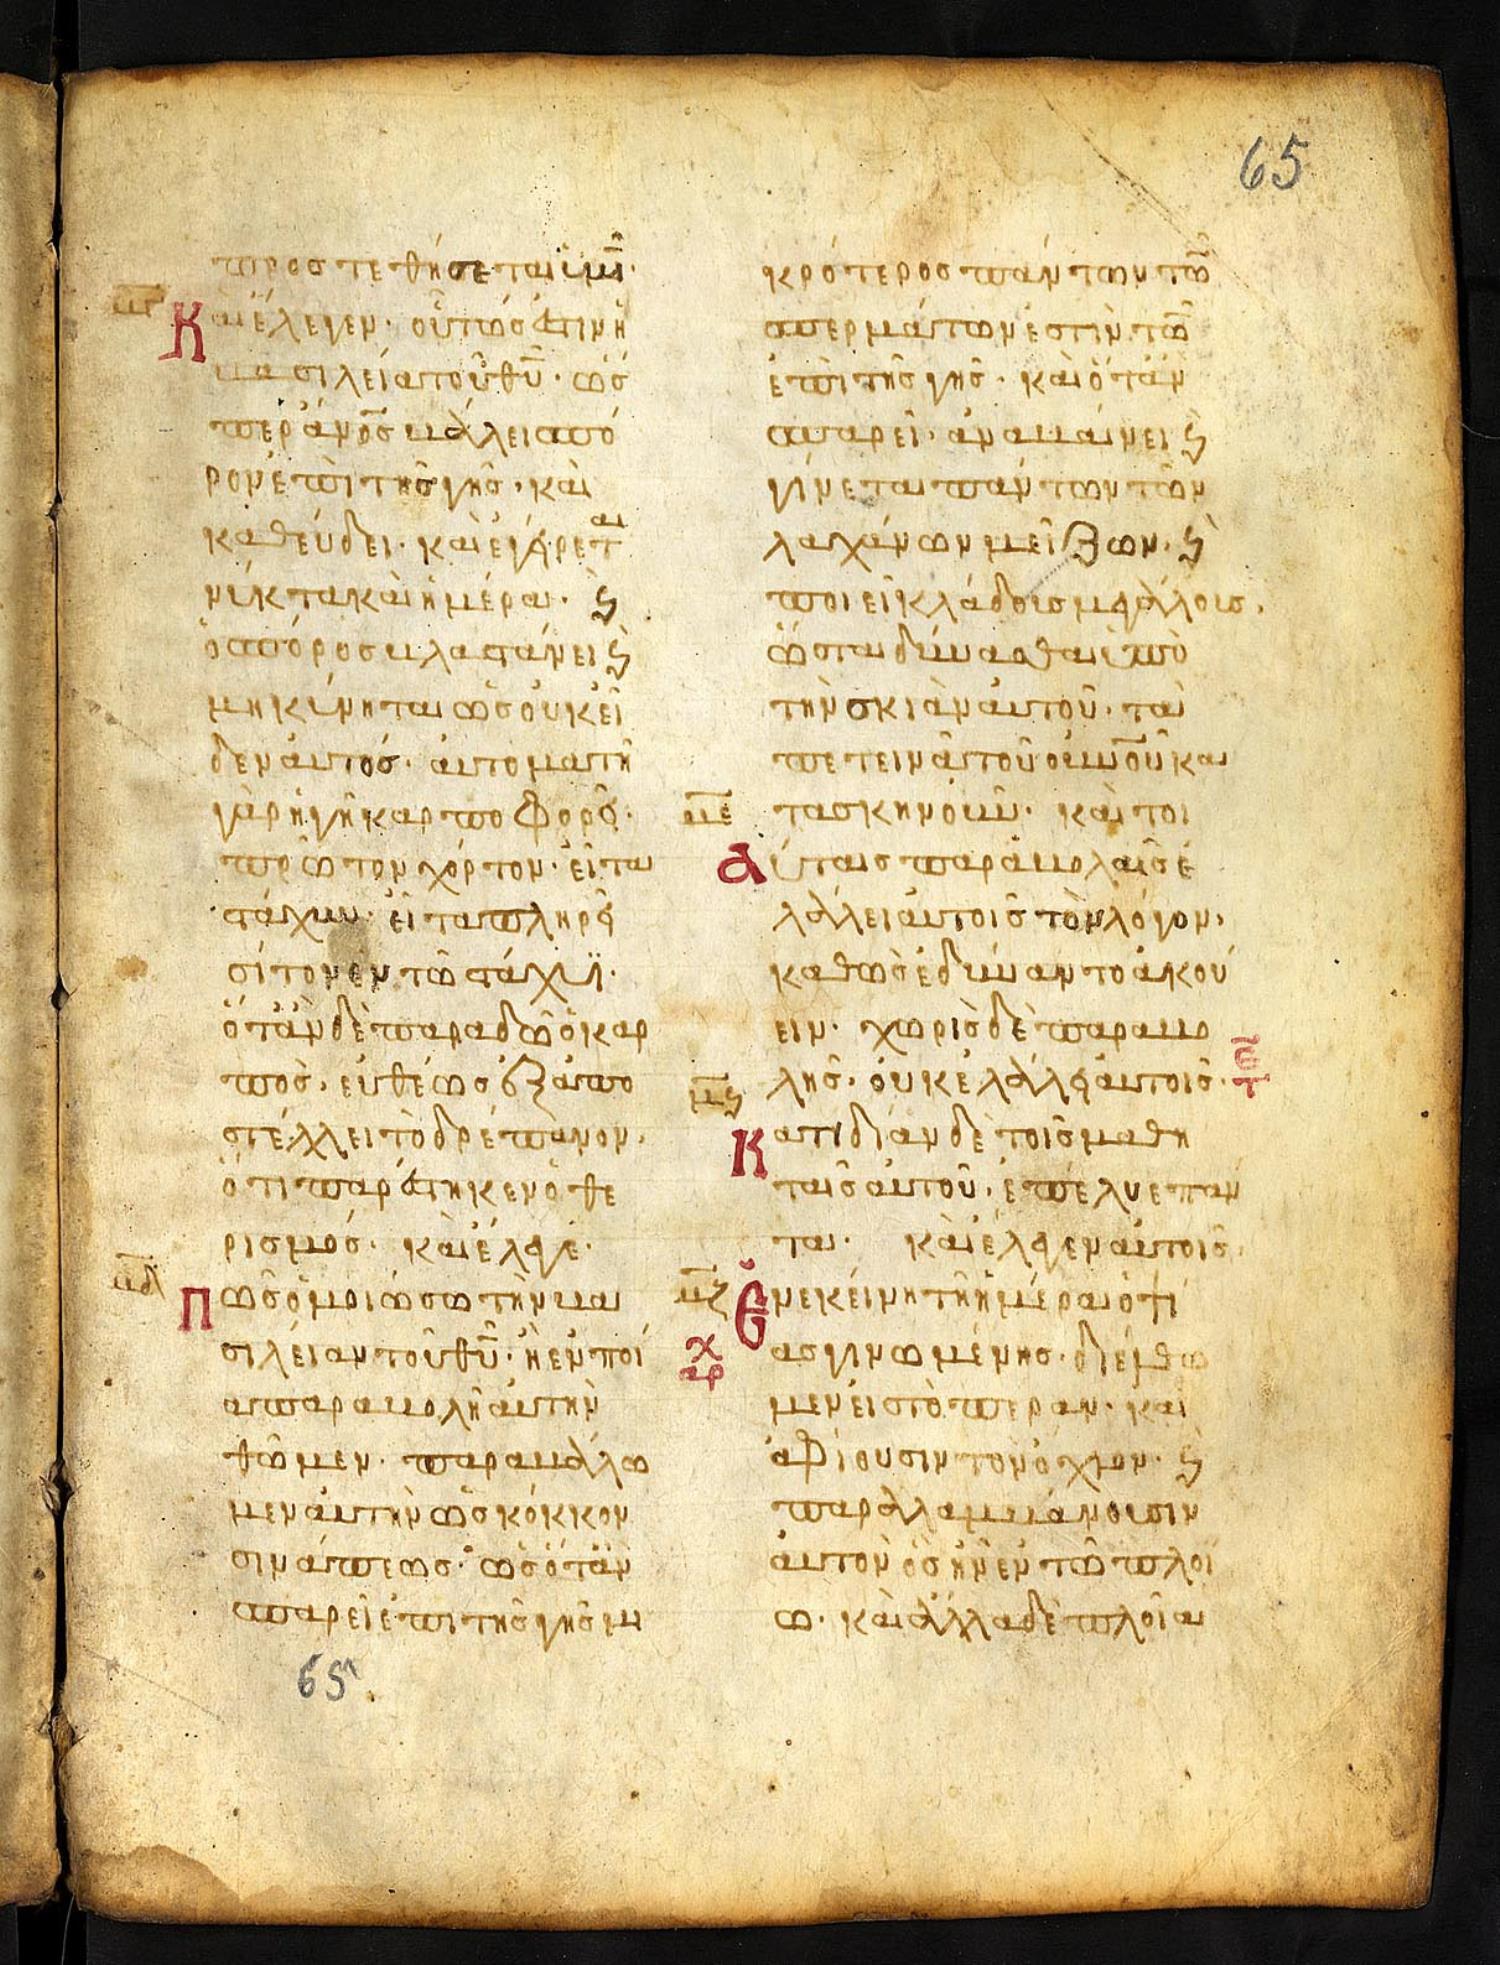 65
προστεθήσεται ὑμῖ·
μγ
Καὶ ἔλεγεν· οὕτως ἐστὶν ἡ
βασιλεία τοῦ θῦ· ὡς
περ ἄνος βάλλει σπό
ρον ἐπὶ τῆς γῆς· καὶ
καθεύδει· καὶ ἐγείρεται
νύκτα καὶ ἡμέρα· ϛ̀
ὁ σπόρος βλαστάνει ϛ̀
μηκύνηται ὡς οὐκ εἶ
δεν αὐτός· αὐτομάτη
γὰρ ἡ γῆ καρποφορεῖ·
πρῶτον χόρτον· εἶτα
στάχυν· εἶτα πλήρη
σίτον ἐν τῶ στάχυϊ·
ὅταν δὲ παραδῶ ὁ καρ
πὸς· εὐθέως ἐξαπο
στέλλει τὸ δρέπανον·
ὅτι παρέστηκεν ὁ θε
ρισμός· καὶ ἔλεγε·
μδ
Πῶς ὁμοιώσω τὴν βα
σιλείαν τοῦ θῦ· ἢ ἐν ποί
α παραβολῆ αὐτὴν
θῶμεν· παραβάλλω
μεν αὐτὴν ὡς κόκκον
σινάπεως· ὡς ὅταν
σπαρεῖ ἐπὶ τῆς γῆς μι
65
κρότερος πάντων τῶ
σπερμάτων ἐστὶν τῶ
ἐπὶ τῆς γῆς· καὶ ὅταν
σπαρεῖ· ἀναβαίνει ϛ
γίνεται πάντων τῶν
λαχάνων μείζων· ϛ̀
ποιεῖ κλάδοις μεγάλοις·
ὥσται δύνασθαι ὑπὸ
τὴν σκιὰν αὐτοῦ· τὰ
πετεινὰ τοῦ οὐνοῦ κα
τασκηνοῦν· καὶ τοι
με
Αύταις παραβολαῖς ἐ
λάλλει αὐτοῖς τὸν λόγον·
καθὼς ἐδύναντο ἀκού
ειν· χωρὶς δὲ παραβο
λῆς· οὐκ ἐλάλλει αὐτοῖς·
μϛ
Κατιδίαν δὲ τοῖς μαθη
ταῖς αὐτοῦ· ἐπέλυε πάν
τα· καὶ ἔλεγεν αὐτοῖς·
μζ
Ἐν ἐκείνη τῆ ἡμέρα ὀψί
ας γινωμένης· διέλθω
μεν εἰς τὸ πέραν· καὶ
ἀφίουσιν τὸν ὄχλον· ϛ
παραλλαμβάνουσιν
αὐτὸν ὃς ἦν ἐν τῶ πλοί
ω· καὶ ἄλλα δὲ πλοῖα